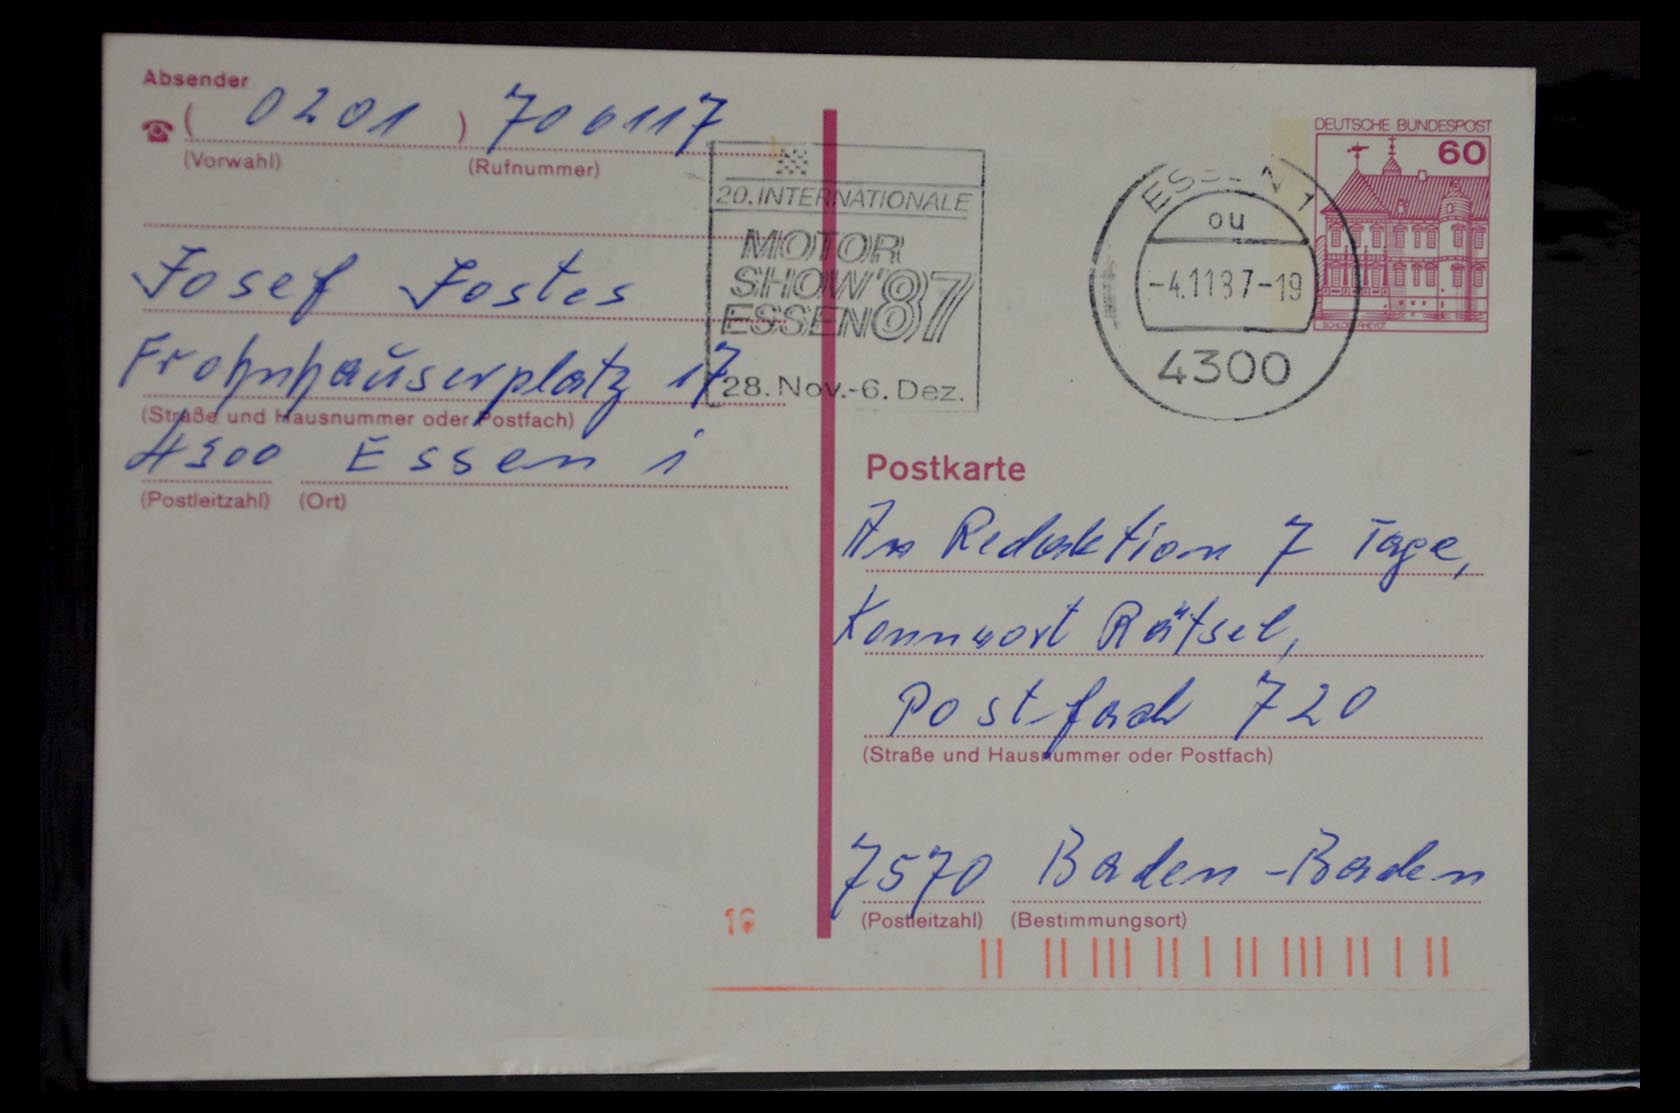 Absender
( 0201 ) 706117
(Vorwahl) (Rufnummer)
Josef Jostes
Frohnhauserplatz 17
(Straße und Hausnummer oder Postfach)
4300 Essen 1
(Postleitzahl) (Ort)
20. INTERNATIONALE
MOTOR
SHOW'87
ESSEN
28. Nov.-6. Dez.
ESSEN 1
ou
-4.11 87-19
4300
DEUTSCHE BUNDESPOST
60
SCHLOSS RHEYDT
Postkarte
An Redaktion 7 Tage,
Kennwort Rätsel,
Postfach 720
(Straße und Hausnummer oder Postfach)
7570 Baden-Baden
(Postleitzahl) (Bestimmungsort)